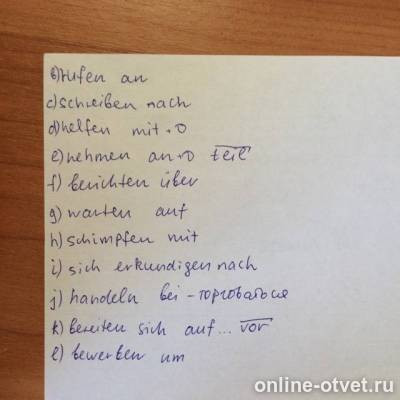 b) rufen an
c) schreiben nach
d) helfen mit +D
e) nehmen an+D teil
f) berichten über
g) warten auf
h) schimpfen mit
i) sich erkundigen nach
j) handeln bei - торговаться
k) bereiten sich auf... vor
l) bewerben um
online-otvet.ru